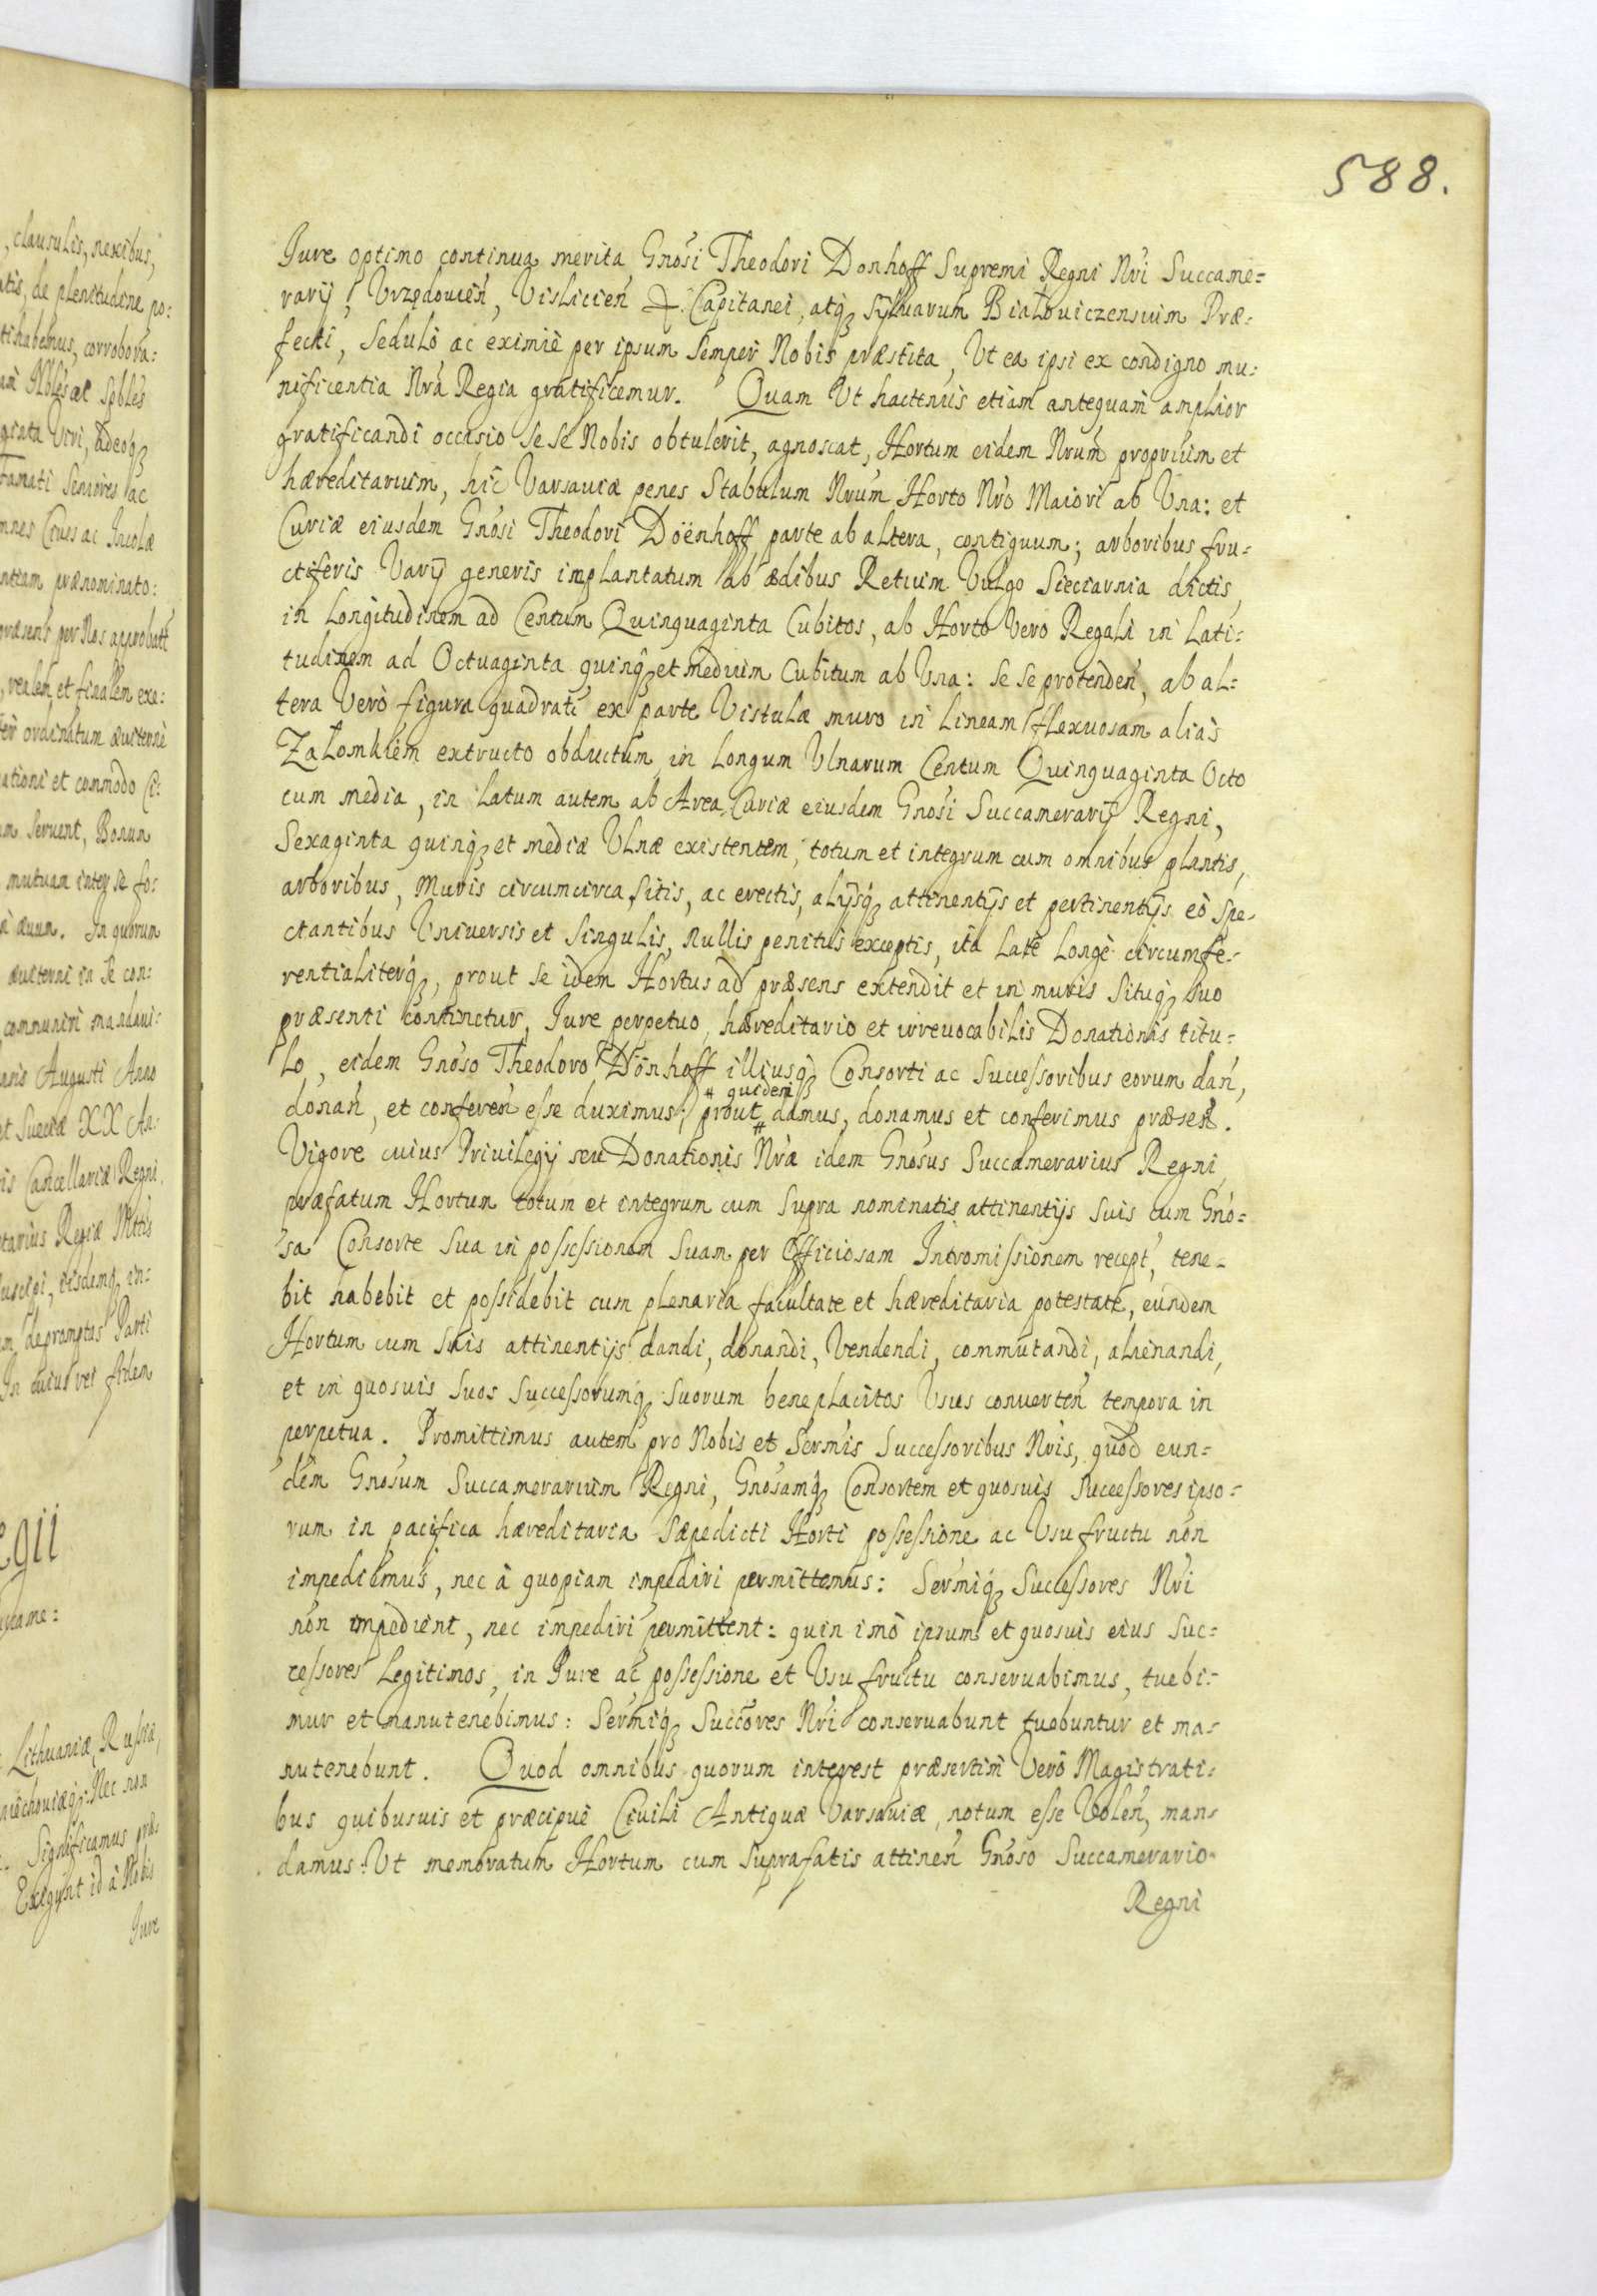 588.
Jure optimo continua merita Gnosi Theodori Donhoff Supremi Regni Nri Succame=
rarij, Vrzędouien, Vislicien &. Capitanei, atq₃ Syluarum Białouiczensium Præ=
fecti, Sedulò ac eximiè per ipsum Semper Nobis præstita, Vt ea ipsi ex condigno mu=
nificentia Nrâ Regia gratificemur. Quam Vt hactenus etiam antequam amplior
gratificandi occasio Se se Nobis obtulerit, agnoscat, Hortum eidem Nrum proprium et
hæreditarium, hic Varsauiæ penes Stabulum Nrum Horto Nro Maiori ab Vna: et
Curiæ eiusdem Gnosi Theodori Döenhoff parte ab altera, contiguum; arboribus fru=
ctiferis Varij generis implantatum ab ædibus Retium Vulgo Sieciarnia dictis,
in Longitudinem ad Centum Quinquaginta Cubitos, ab Horto Vero Regali in Lati=
tudinem ad Octuaginta quinq₃ et medium Cubitum ab Vna: Se se protenden, ab al=
tera Verò figura quadrati ex parte Vistulæ muro in Lineam flexuosam aliàs
Załomkiem extructo obductum, in Longum Vlnarum Centum Quinquaginta Octo
cum media, in Latum autem ab Area Curiæ eiusdem Gnosi Succamerarij Regni,
Sexaginta quinq₃ et mediæ Vlnæ existentem, totum et integrum cum omnibus plantis,
arboribus, Muris circumcirca Sitis, ac erectis, alijsq₃ attinentijs et pertinentijs eò Spe=
ctantibus Vniuersis et Singulis, nullis penitus exceptis, ita Latè Longè circumfe=
rentialiterq₃, prout se idem Hortus ad præsens extendit et in muris Situq₃ Suo
præsenti continetur, Jure perpetuo, hæreditario et irreuocabilis Donationis titu=
lo, eidem Gnoso Theodoro Dönhoff illiusq₃ Consorti ac Successoribus eorum dan,
# quidem
donan, et conferen esse duximus; prout # damus, donamus et conferimus præsen.
Vigore cuius Priuilegij seu Donationis Nræ idem Gnosus Succamerarius Regni,
præfatum Hortum totum et integrum cum Supra nominatis attinentijs Suis cum Gno=
sa Consorte Sua in possessionem Suam per Officiosam Intromissionem recept, tene=
bit habebit et possidebit cum plenaria facultate et hæreditaria potestate, eundem
Hortum cum Suis attinentijs dandi, donandi, Vendendi, commutandi, alienandi,
et in quosuis Suos Successorumq₃ Suorum beneplacitos Vsus conuerten tempora in
perpetua. Promittimus autem pro Nobis et Sermis Successoribus Nris, quod eun=
dem Gnosum Succamerarium Regni, Gnosamq₃ Consortem et quosuis Successores ipso=
rum in pacifica hæreditaria Sæpedicti Horti possessione ac Vsufructu non
impediemus, nec à quopiam impediri permittemus: Sermiq₃ Successores Nri
non impedient, nec impediri permittent: quin imò ipsum et quosuis eius Suc=
cessores Legitimos, in Jure ac possessione et Vsufructu conseruabimus, tuebi=
mur et manutenebimus: Sermiq₃ Succores Nri conseruabunt tuebuntur et ma=
nutenebunt. Quod omnibus quorum interest præsertim Verò Magistrati=
bus quibusuis et præcipuè Ciuili Antiquæ Varsauiæ, notum esse Volen, man=
damus. Vt memoratum Hortum cum Suprafatis attinen Gnoso Succamerario
Regni